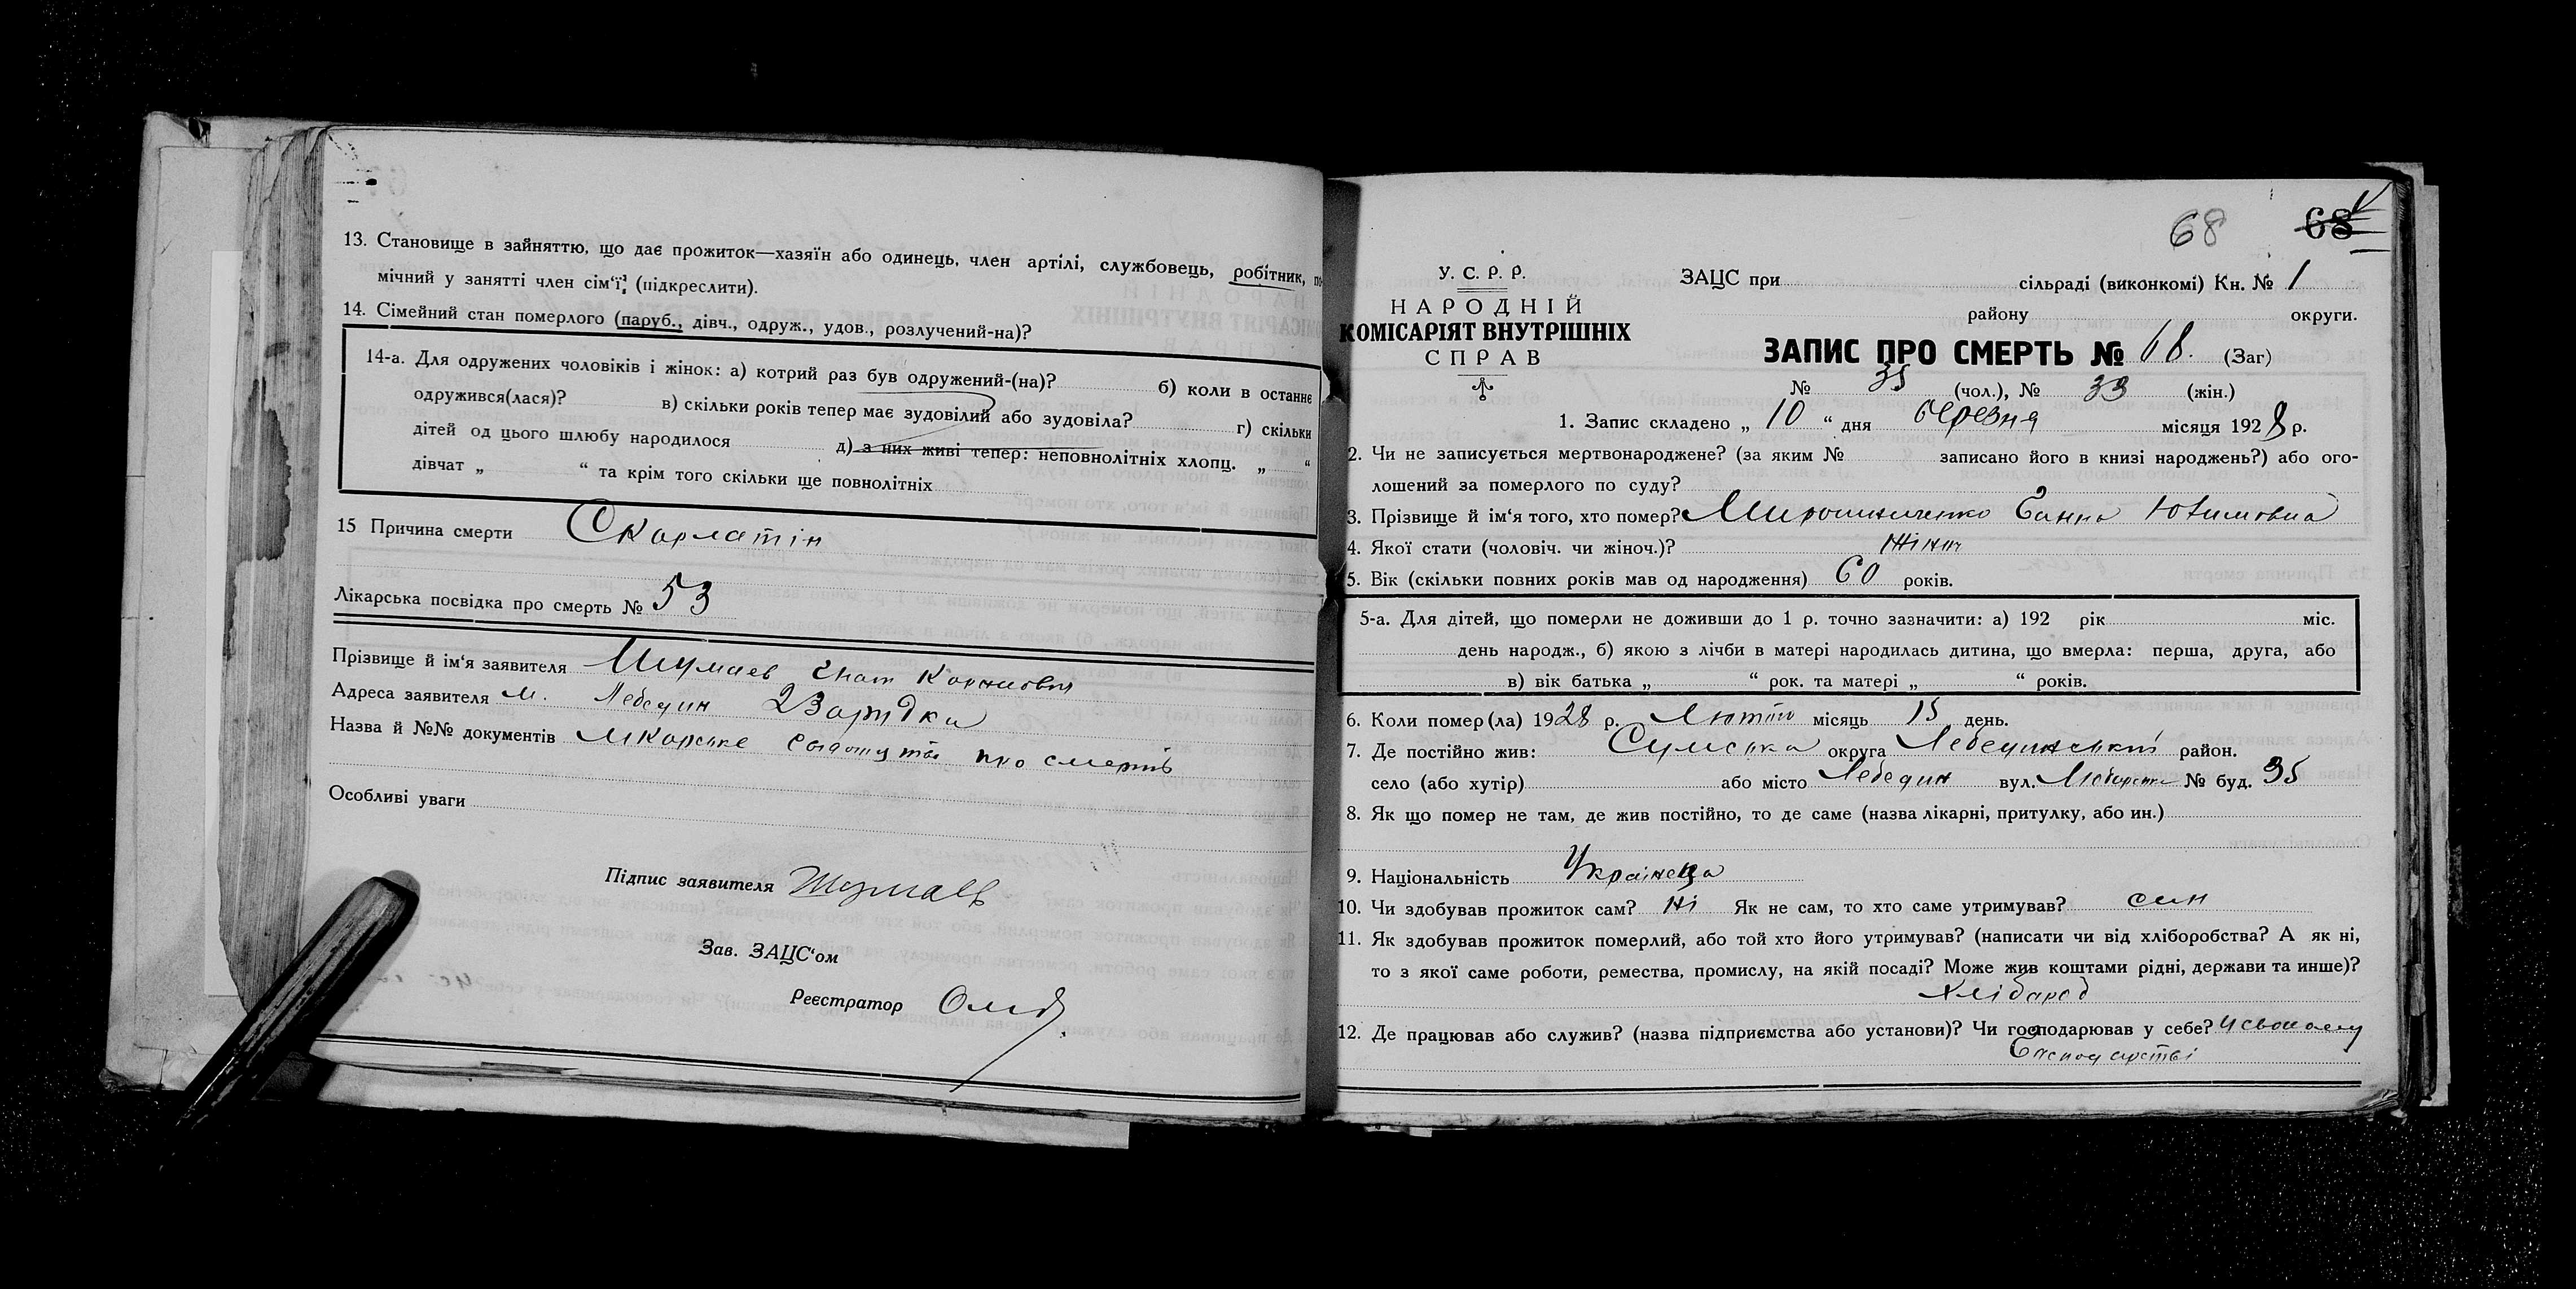 13. Становище в зайняттю, що дає прожиток—хазяїн або одинець, член артілі, службовець, робітник, по-
мічний у занятті член сім'ї? (підкреслити).
14. Сімейний стан померлого (паруб., дівч., одруж., удов., розлучений-на)?
14-а. Для одружених чоловіків і жінок: а) котрий раз був одружений-(на)? б) коли в останнє
одружився(лася)? в) скільки років тепер має зудовілий або зудовіла? г) скільки
дітей од цього шлюбу народилося д) з них живі тепер: неповнолітніх хлопц. „ “
дівчат „ “ та крім того скільки ще повнолітніх
15 Причина смерти Скарлатін
Лікарська посвідка про смерть № 53
Прізвище й ім'я заявителя Шумаев Гнат
Адреса заявителя м. Лебедин
Назва й №№ документів лікарське про смерть
Особливі уваги
Підпис заявителя Шумаев
Зав. ЗАЦС'ом
Реєстратор
68 68
У. С. Р. Р.
НАРОДНІЙ
КОМІСАРІЯТ ВНУТРІШНІХ
СПРАВ
ЗАЦС при сільраді (виконкомі) Кн. № 1
району округи.
ЗАПИС ПРО СМЕРТЬ № 68. (Заг)
№ 35 (чол.), № 33 (жін.)
1. Запис складено „ 10 “ дня березня місяця 1928 р.
2. Чи не записується мертвонароджене? (за яким № записано його в книзі народжень?) або ого-
лошений за померлого по суду?
3. Прізвище й ім'я того, хто помер? Мирошниченко Ганна Юхимовна
4. Якої стати (чоловіч. чи жіноч.)? жіноч
5. Вік (скільки повних років мав од народження) 60 років.
5-а. Для дітей, що померли не доживши до 1 р. точно зазначити: а) 192 рік міс.
день народж., б) якою з лічби в матері народилась дитина, що вмерла: перша, друга, або
в) вік батька „ “ рок. та матері „ “ років.
6. Коли помер(ла) 1928 р. Лютого місяць 15 день.
7. Де постійно жив: Сумська округа Лебединський район.
село (або хутір) або місто Лебедин вул. № буд. 35
8. Як що помер не там, де жив постійно, то де саме (назва лікарні, притулку, або ин.)
9. Національність Українка
10. Чи здобував прожиток сам? ні Як не сам, то хто саме утримував? син
11. Як здобував прожиток померлий, або той хто його утримував? (написати чи від хліборобства? А як ні,
то з якої саме роботи, ремества, промислу, на якій посаді? Може жив коштами рідні, держави та инше)?
хлібороб
12. Де працював або служив? (назва підприємства або установи)? Чи господарював у себе? у своему
Господарстві